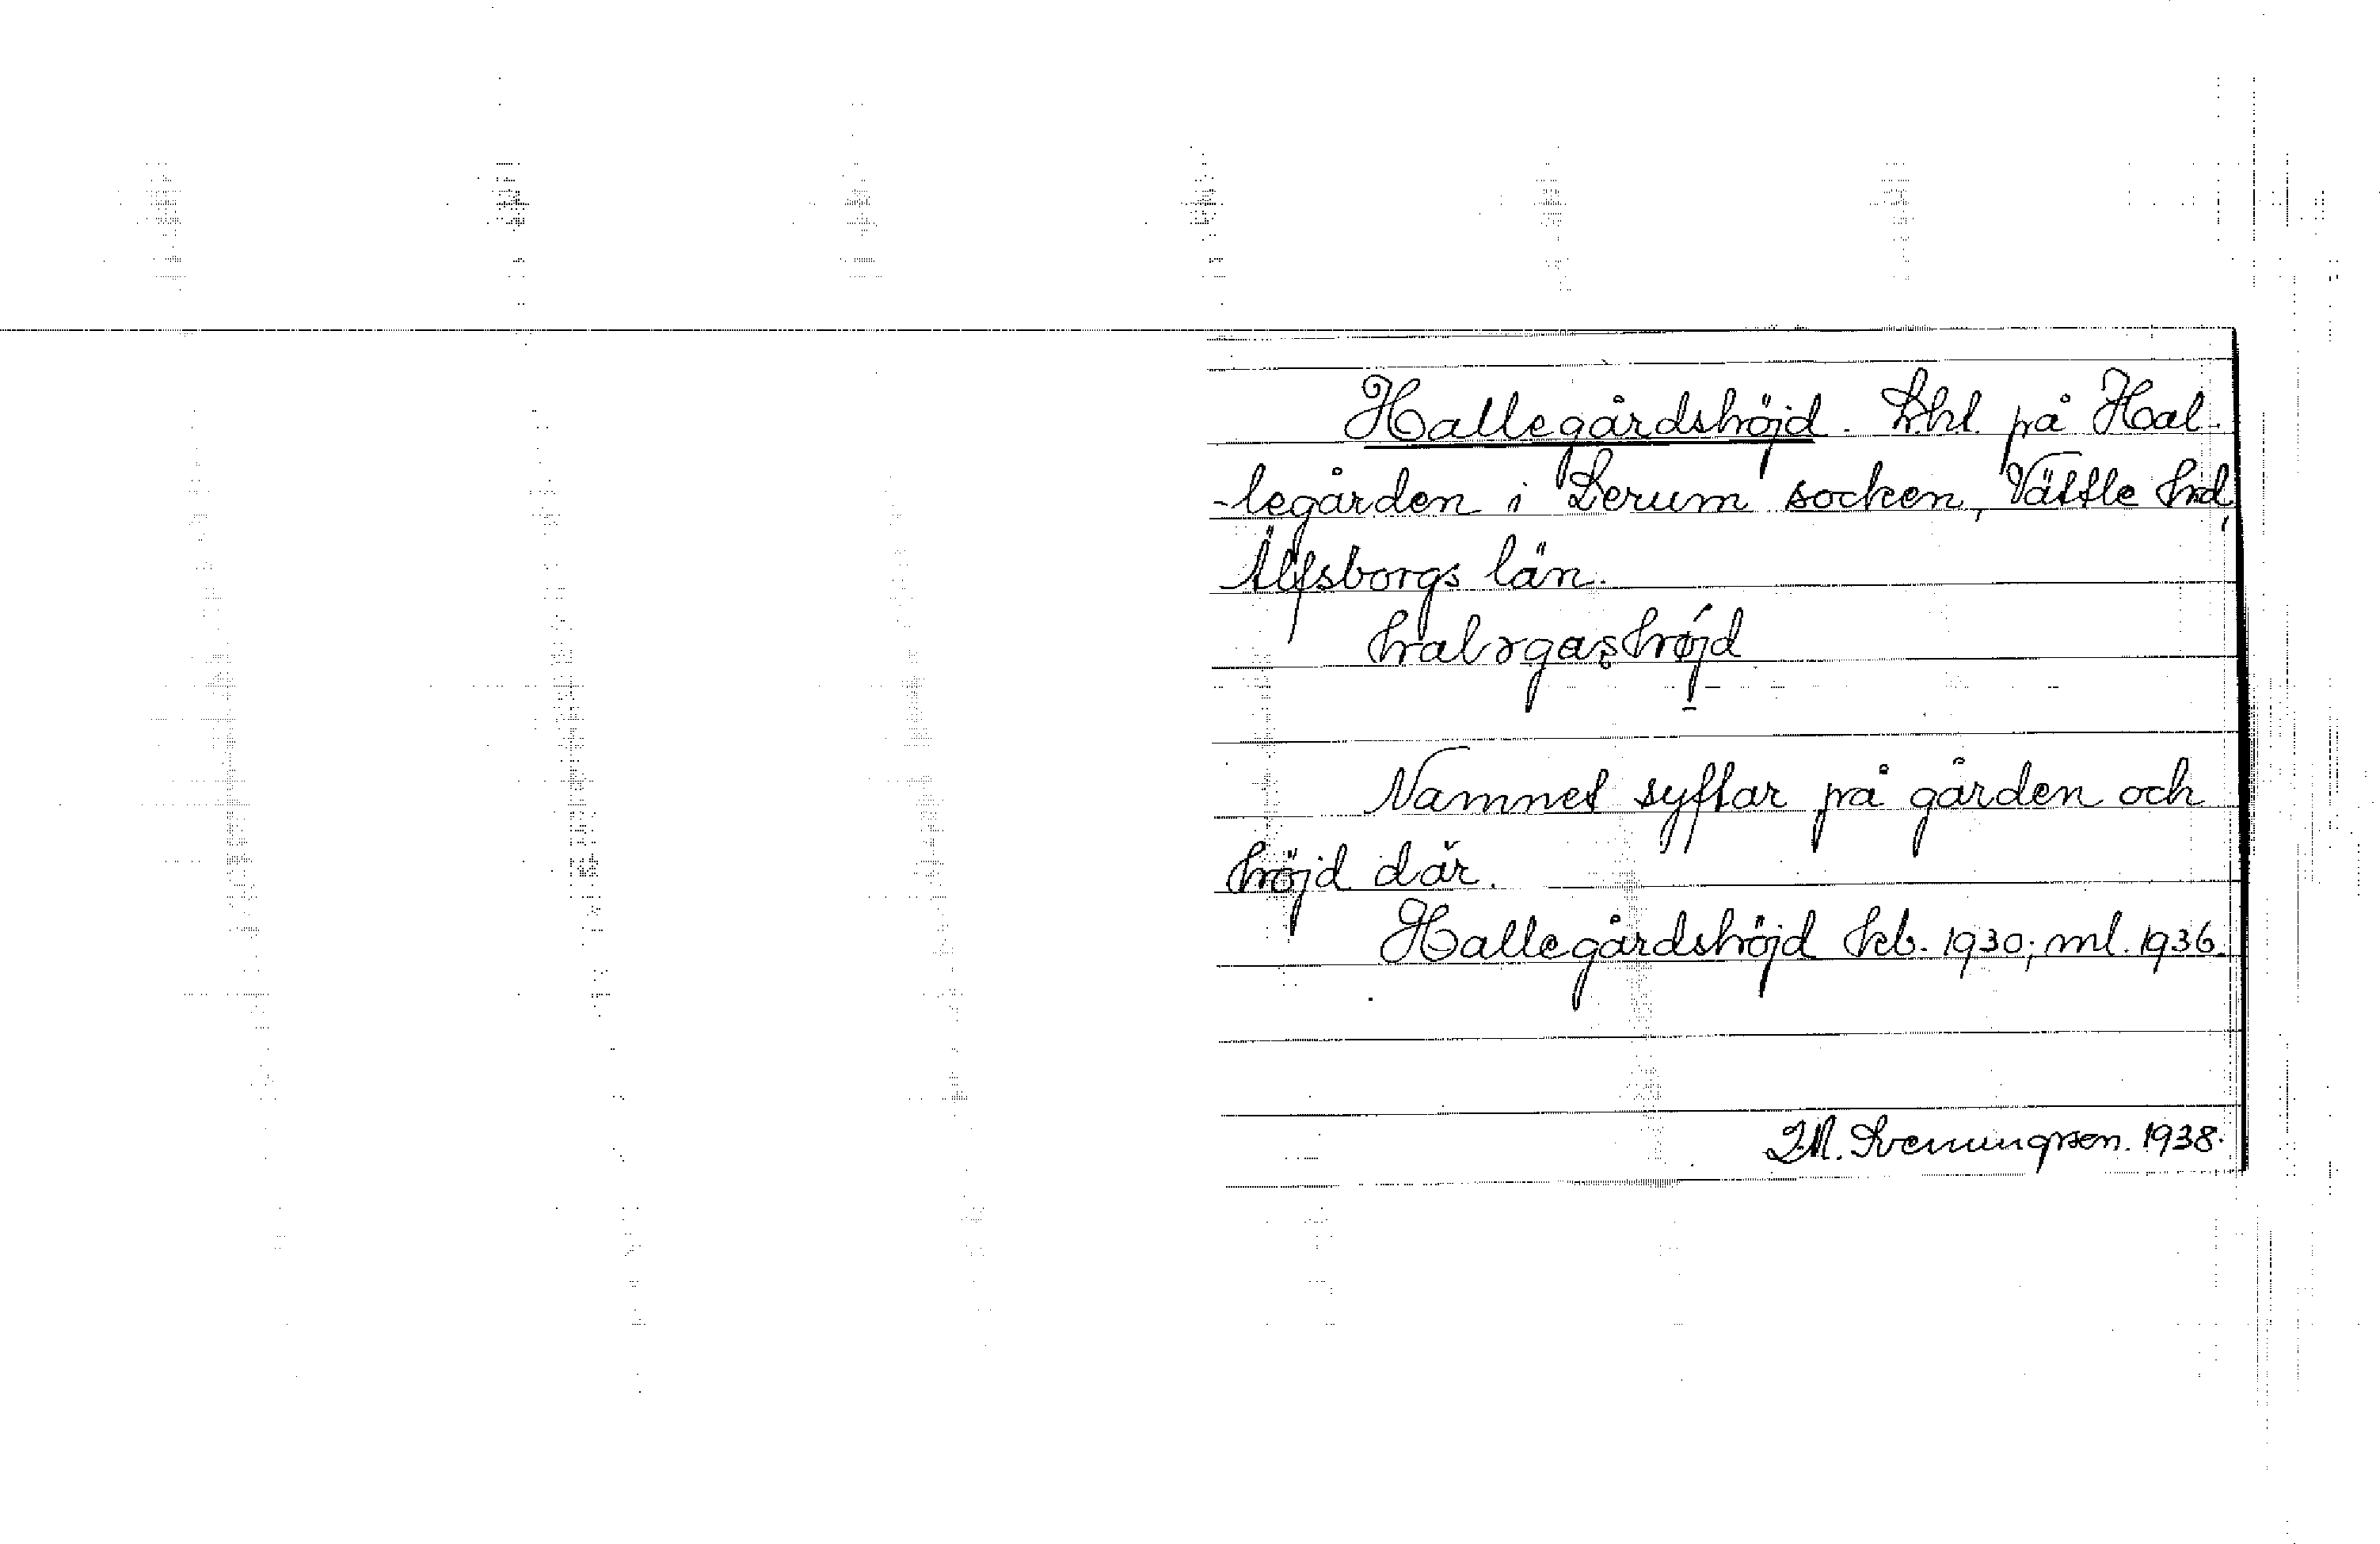 Hallegårdshöjd. Lhl. på Hal-
-legården i Lerum socken, Vättle hd,
Älfsborgs län.
Namnet syftar på gården och
höjd där.
Hallegårdshöjd kb. 1930; ml. 1936.
I.M. Svenungsson. 1938.